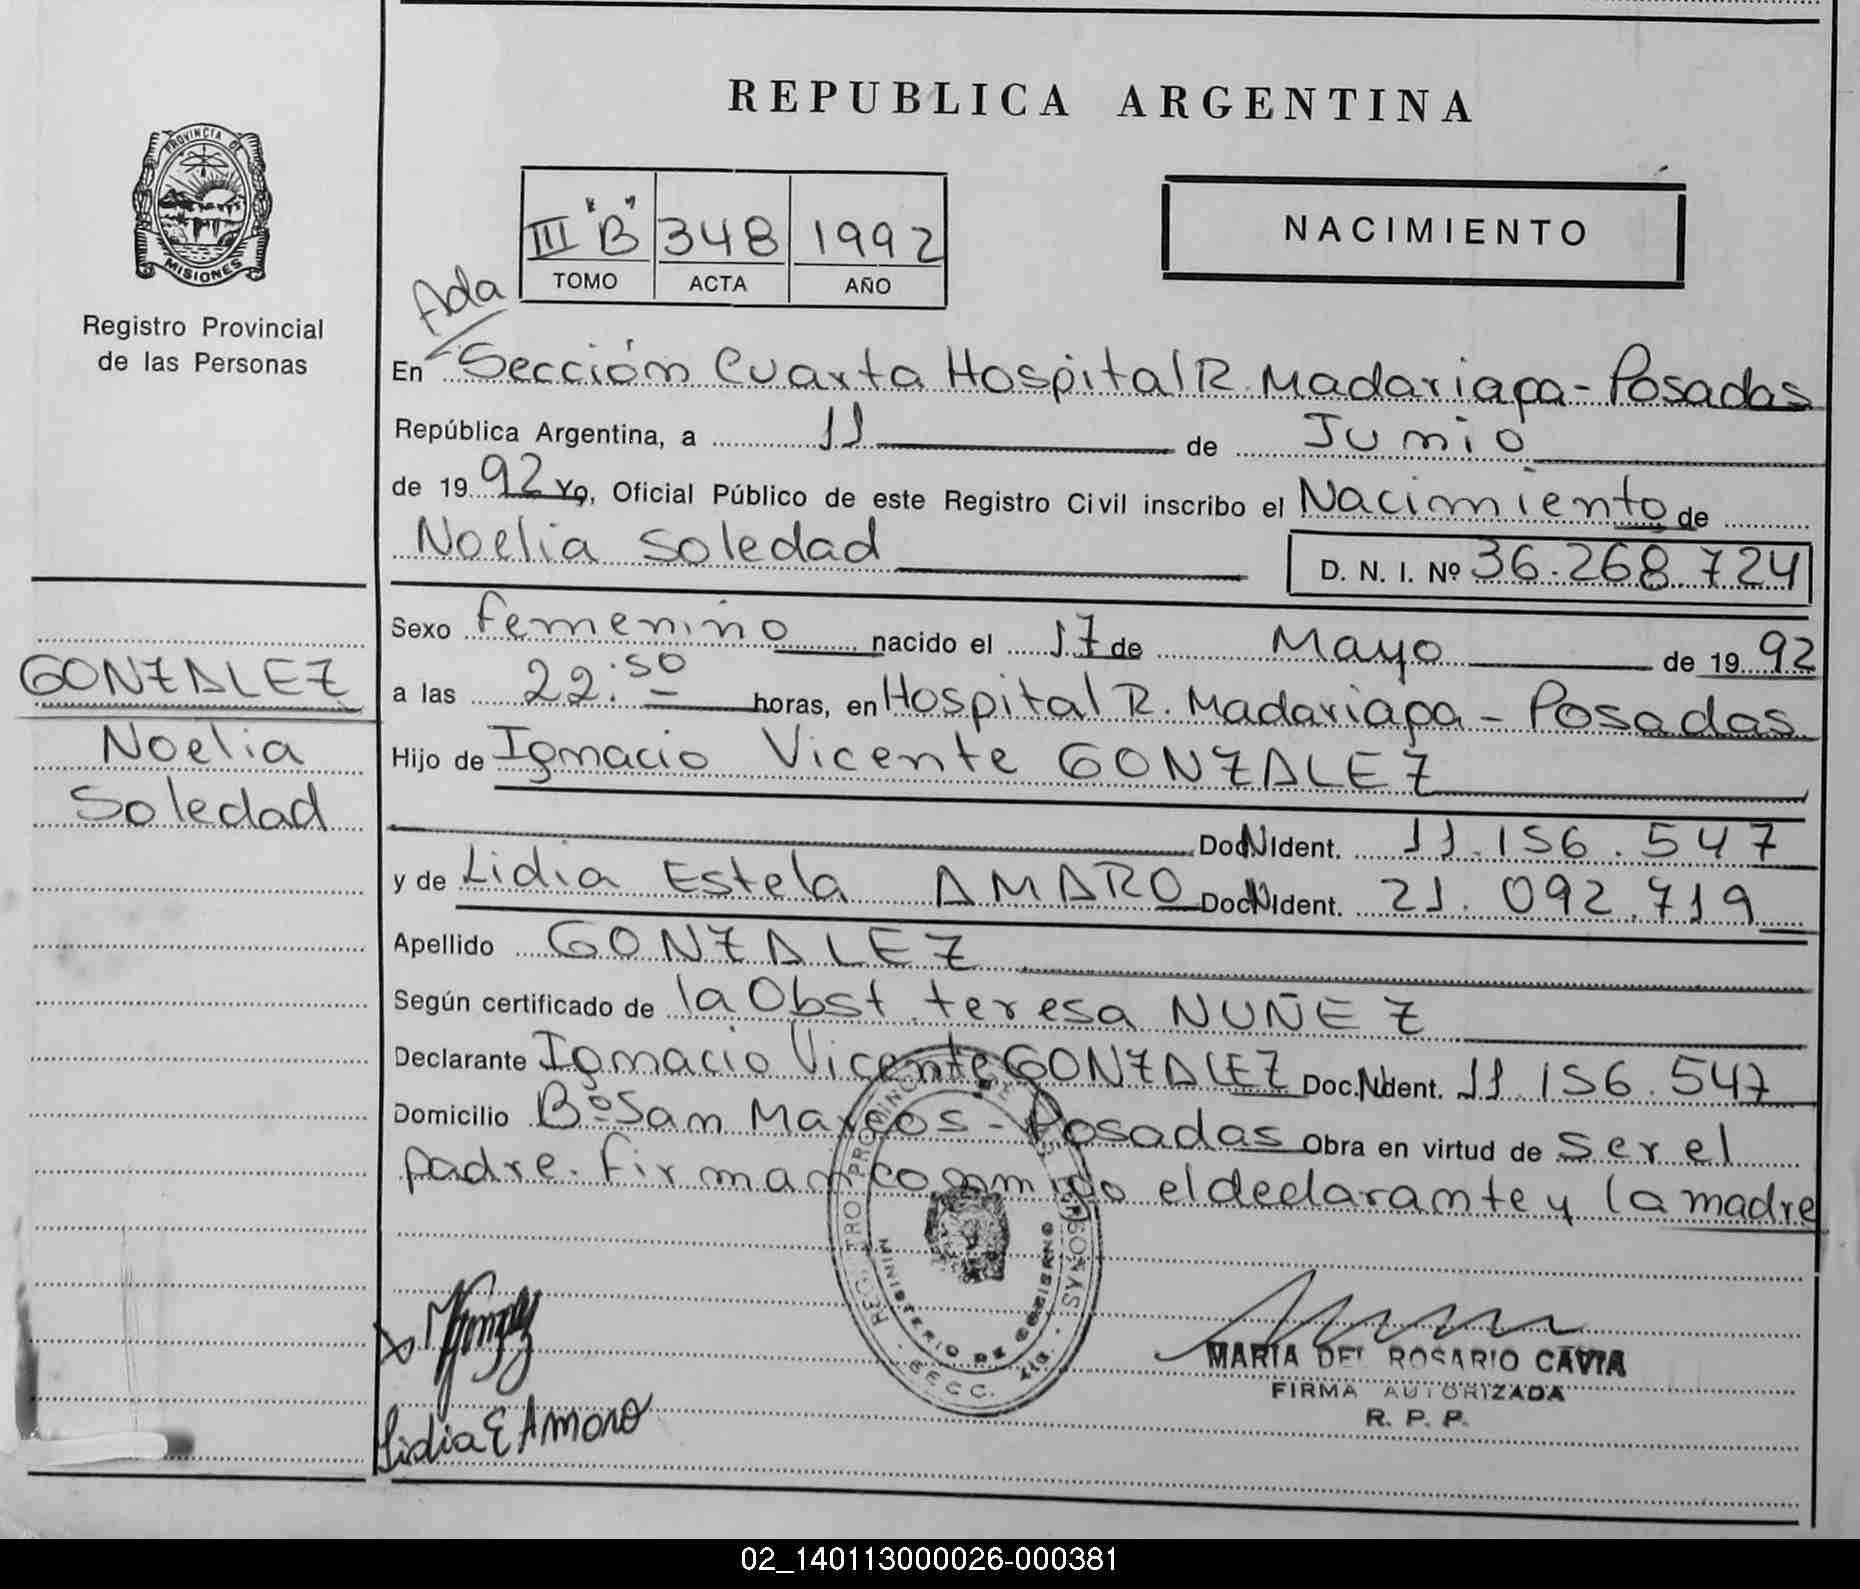 REPUBLICA ARGENTINA
PROVINCIA DE
MISIONES
Registro Provincial
de las Personas
III "B" 348 1992
TOMO ACTA AÑO
NACIMIENTO
Ada
En Sección Cuarta Hospital R. Madariaga - Posadas
República Argentina, a 11 de Junio
de 1992 Yo, Oficial Público de este Registro Civil inscribo el Nacimiento de
Noelia Soledad D. N. I. Nº 36.268.724
Sexo femenino nacido el 17 de Mayo de 1992
GONZALEZ
Noelia
Soledad
a las 22:50 horas, en Hospital R. Madariaga - Posadas
Hijo de Ignacio Vicente GONZALEZ
Doc.N.Ident. 11.156.547
y de Lidia Estela AMARO Doc.N.Ident. 21.092.719
Apellido GONZALEZ
Según certificado de la Obst. teresa NUÑEZ
Declarante Ignacio Vicente GONZALEZ Doc.N.Ident. 11.156.547
Domicilio Bº San Marcos - Posadas Obra en virtud de ser el
padre. firman conmigo el declarante y la madre
MINISTERIO DE GOBIERNO
SECC.
Lidia E Amaro
MARIA DEL ROSARIO CAVIA
FIRMA AUTORIZADA
R. P. P.
02_140113000026-000381